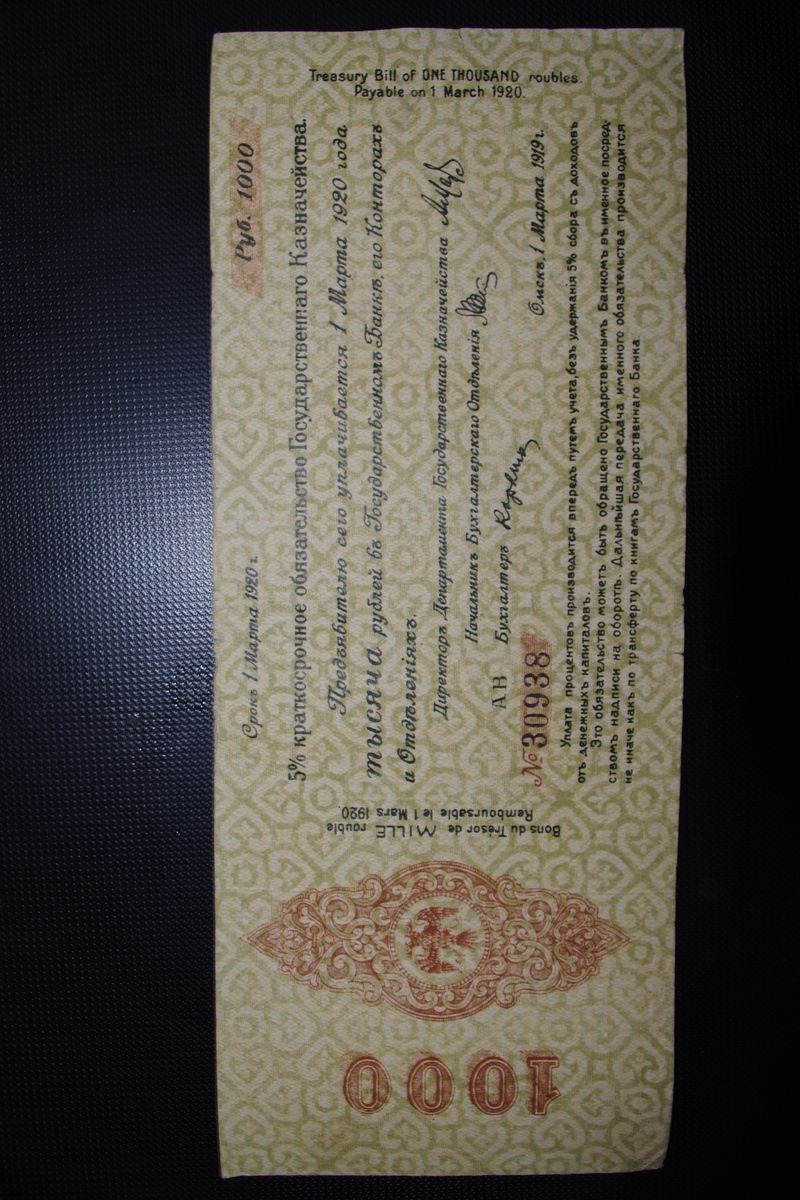 Treasury Bill of ONE THOUSAND roubles.
Payable on 1 March 1920.
Срокъ 1 Марта 1920 г.
Руб. 1000
5% краткосрочное обязательство Государственнаго Казначейства.
Предъявителю сего уплачивается 1 Марта 1920 года
тысяча рублей въ Государственномъ Банкѣ, его Конторахъ
и Отдѣленіяхъ.
Директоръ Департамента Государственнаго Казначейства
Начальникъ Бухгалтерскаго Отдѣленія
АВ Бухгалтеръ
№ 30938
Омскъ, 1 Марта 1919 г.
Уплата процентовъ производится впередъ путемъ учета, безъ удержанія 5% сбора съ доходовъ
отъ денежныхъ капиталовъ.
Это обязательство можетъ быть обращено Государственнымъ Банкомъ въ именное посред-
ствомъ надписи на оборотѣ. Дальнѣйшая передача именного обязательства производится
не иначе какъ по трансферту по книгамъ Государственнаго Банка
Bons du Trésor de MILLE rouble
Remboursable le 1 Mars 1920.
1000